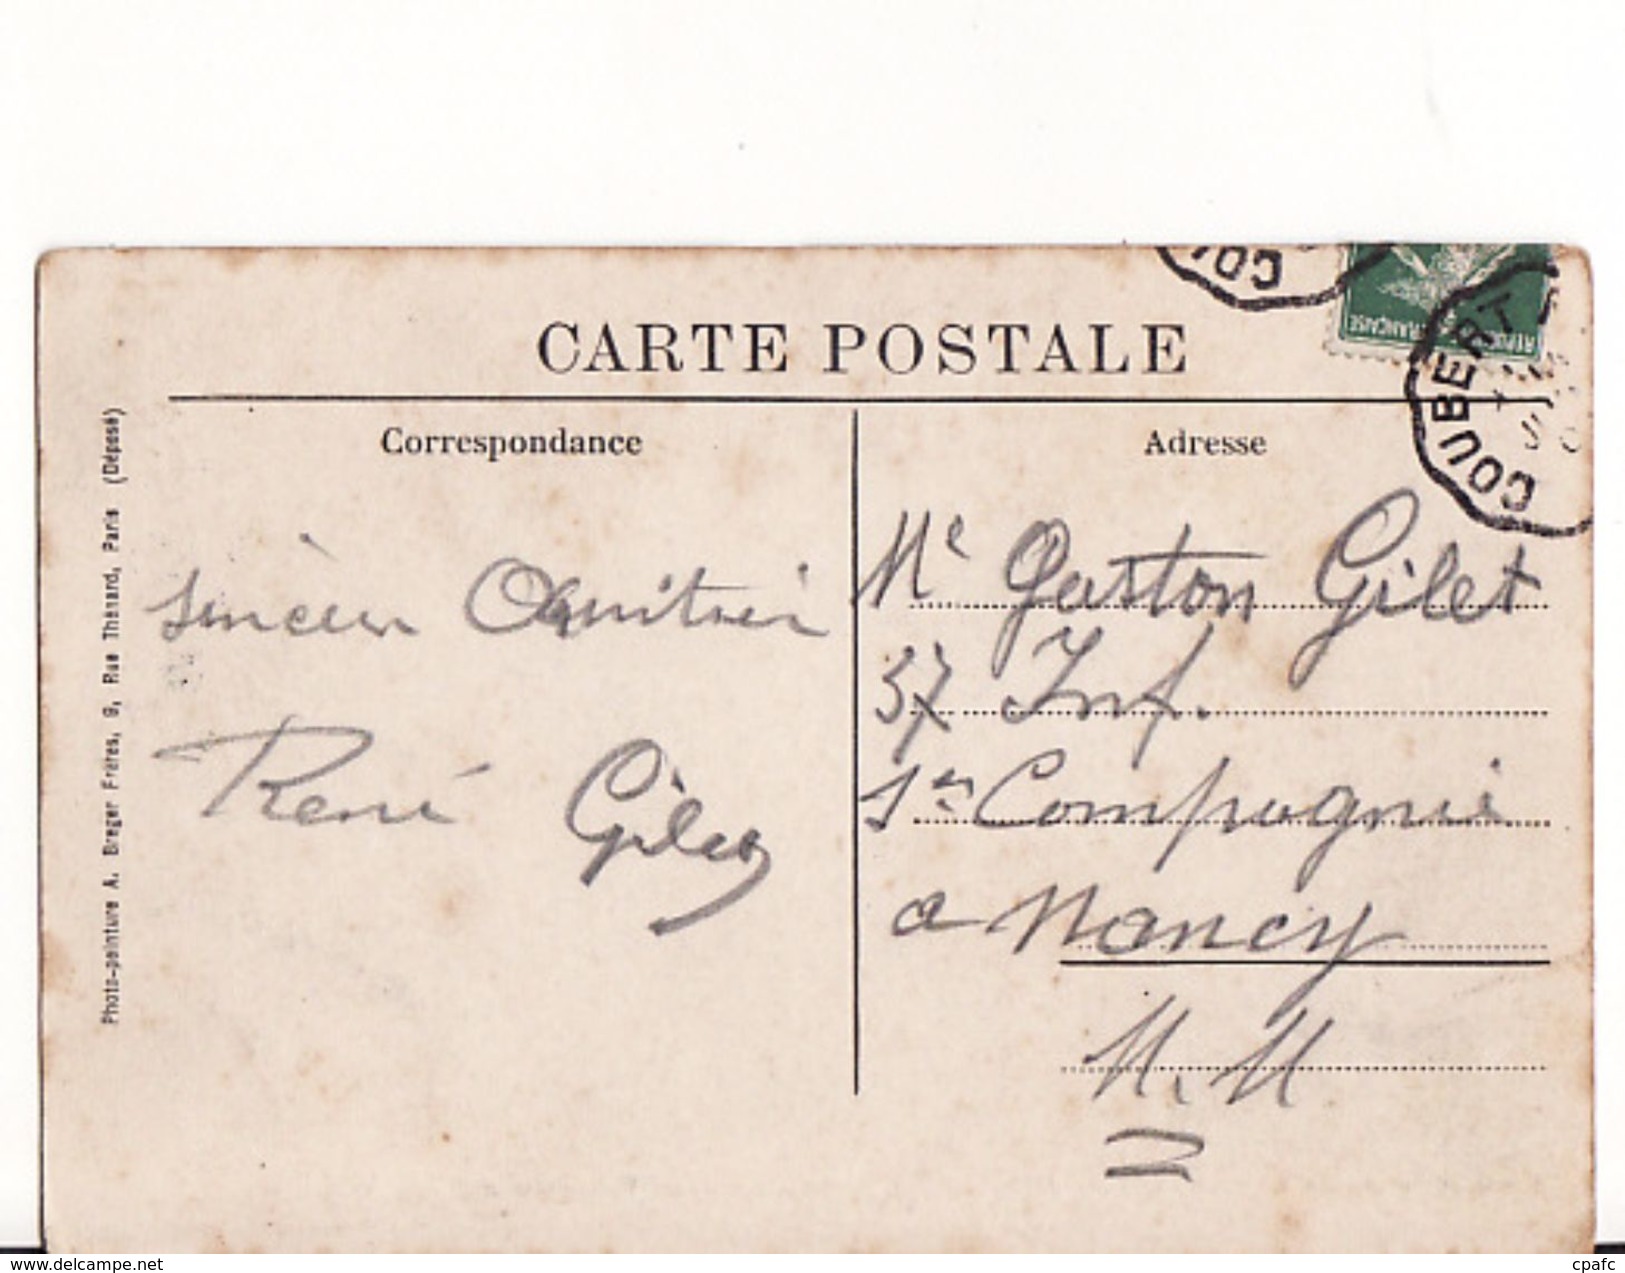 CARTE POSTALE
Correspondance
Adresse
Photo-peinture A. Breger Frères, 9, Rue Thénard, Paris (Déposé)
RÉPUBLIQUE FRANÇAISE
COUBERT
COU
René Gilet
Mr Gaston Gilet
37 Inf.
1re Compagnie
a Nancy
M. M.
delcampe.net
cpafc